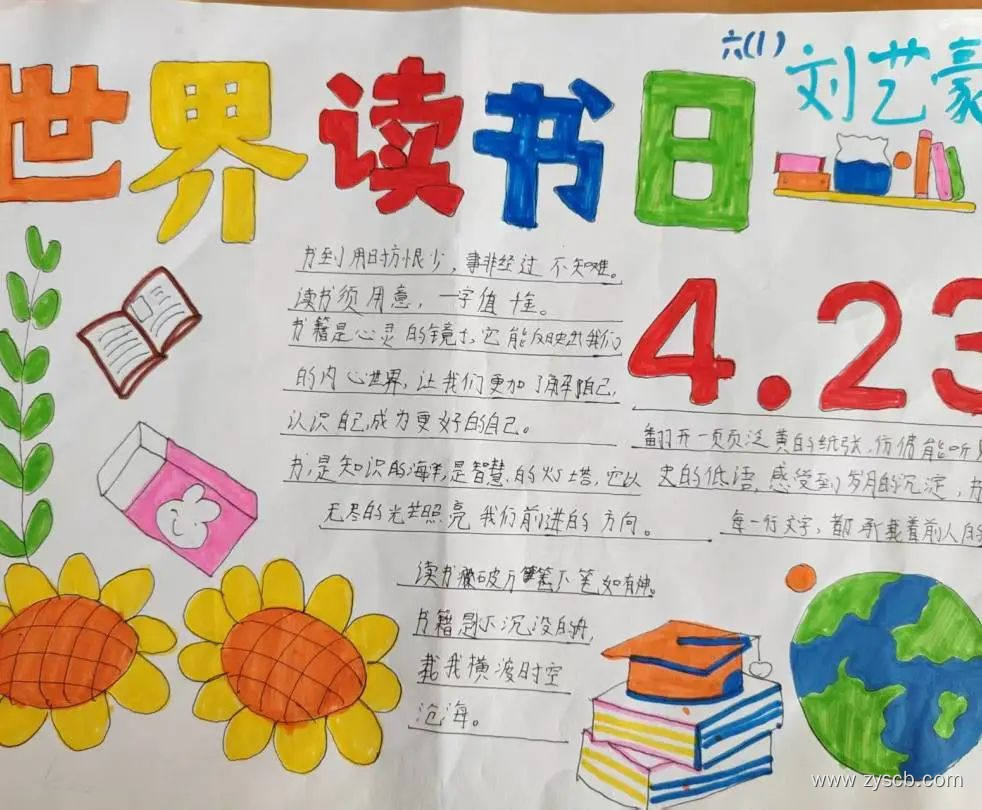 六(1)
刘艺豪
世界读书日
书到用时方恨少，事非经过不知难。
读书须用意，一字值千金。
书籍是心灵的镜子，它能反映出我们
的内心世界，让我们更加了解自己，
认识自己，成为更好的自己。
书，是知识的海洋，是智慧的灯塔，它以
无尽的光芒照亮我们前进的方向。
4.23
翻开一页页泛黄的纸张，仿佛能听
史的低语，感受到岁月的沉淀，书
每一行文字，都承载着前人的
读书破万卷下笔如有神。
书籍是不沉没的舟，
载我横渡时空
沧海。
www.zyscb.com